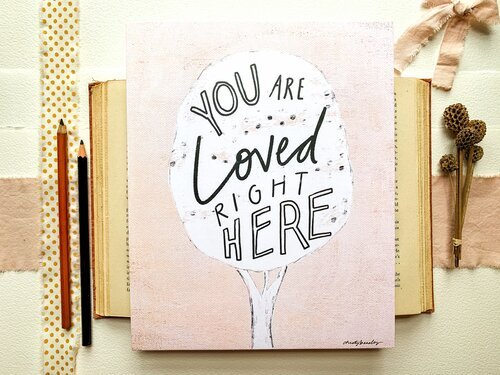 YOU ARE
Loved
RIGHT
HERE